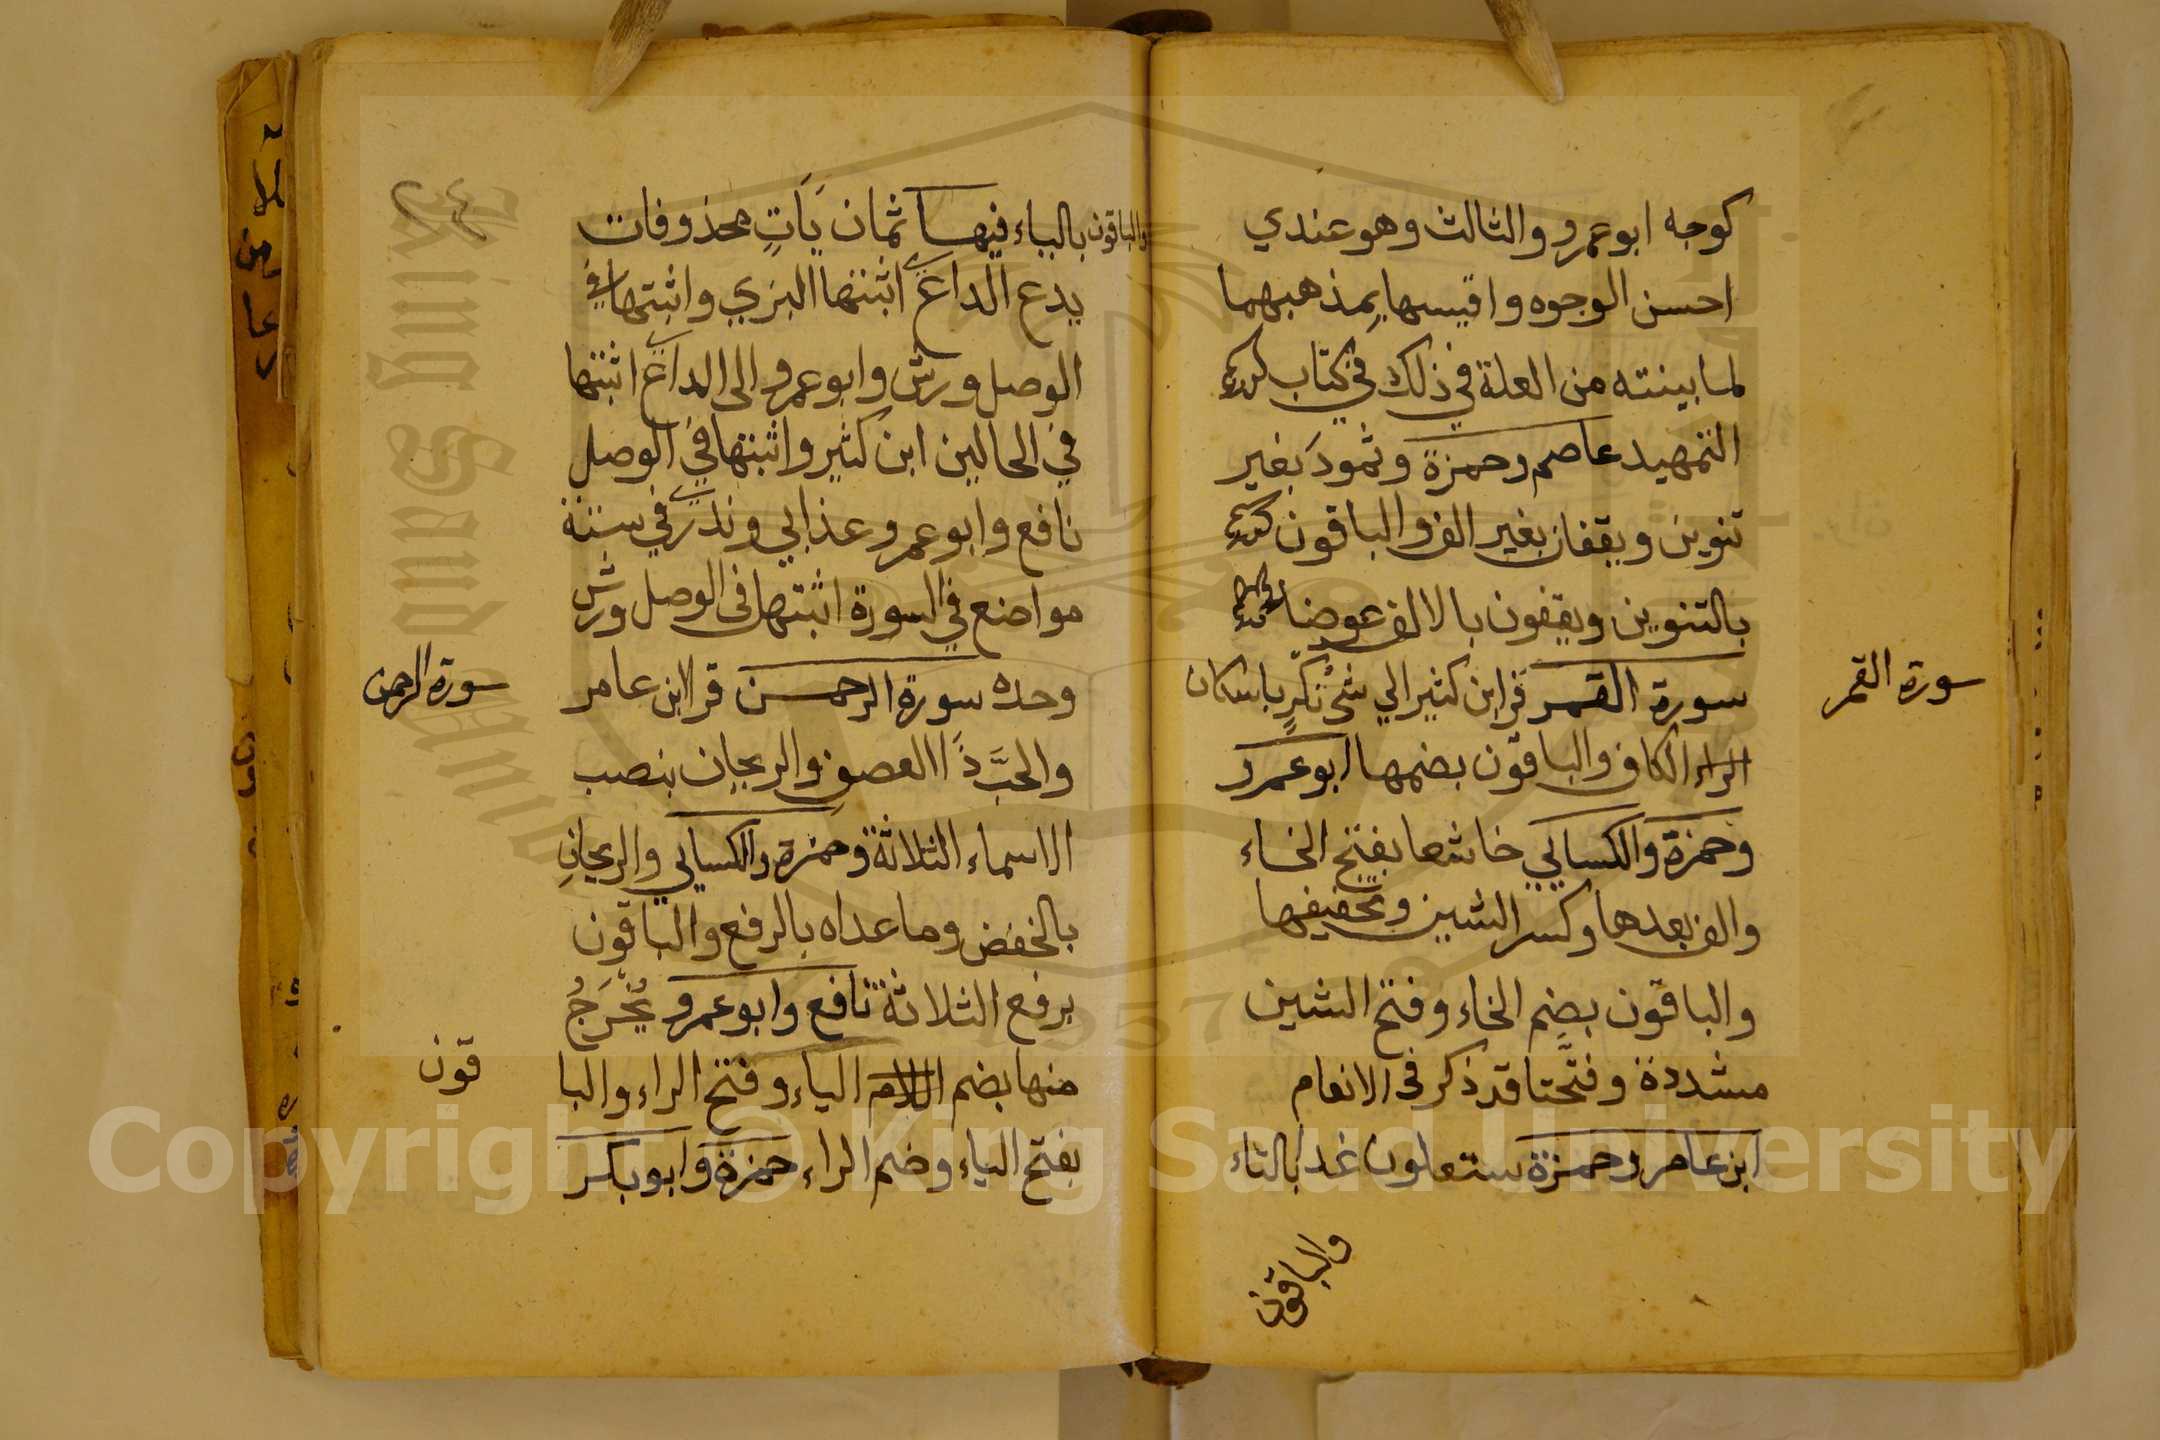 كوجه ابو عمرو والثالث وهو عندي
احسن الوجوه واقيسها بمذهبهما
لما بينته من العلة في ذلك في كتاب
التمهيد عاصم وحمزة وثمود بغير
تنوين ويقفان بغير الف والباقون
بالتنوين ويقفون بالالف عوضا
سورة القمر
سورة القمر قرا ابن كثير الي شئ نكر باسكان
الراء الكاف والباقون بضمها ابو عمرو
وحمزة والكسايي خاشعا بفتح الخاء
والف بعدها وكسر الشين وتخفيفها
والباقون بضم الخاء وفتح الشين
مشددة وفتحتا قد ذكر في الانعام
ابن عامر وحمزة ستعلمون غدا بالتاء
والباقون
والباقون بالياء فيها ثمان يآت محذوفات
يدع الداع ي اثبتها البزي واثبتها في
الوصل ورش وابو عمرو الى الداع ي اثبتها
في الحالين ابن كثير واثبتها في الوصل
نافع وابو عمرو عذابي ونذر ي في ستة
مواضع في السورة اثبتهل فى الوصل ورش
وحده سورة الرحمن قرا ابن عامر
سورة الرحمن
والحبَّ ذَا العصف والريحان بنصب
الاسماء الثلاثة وحمزة والكسايي والريحانِ
بالخفض وما عداه بالرفع والباقون
برفع الثلاثة نافع وابو عمرو يُخْرَجُ
منها بضم اللام الياء وفتح الراء والبا
قون
بفتح الياء وضم الراء حمزة وابو بكر
King Saud University
1957
Copyright © King Saud University